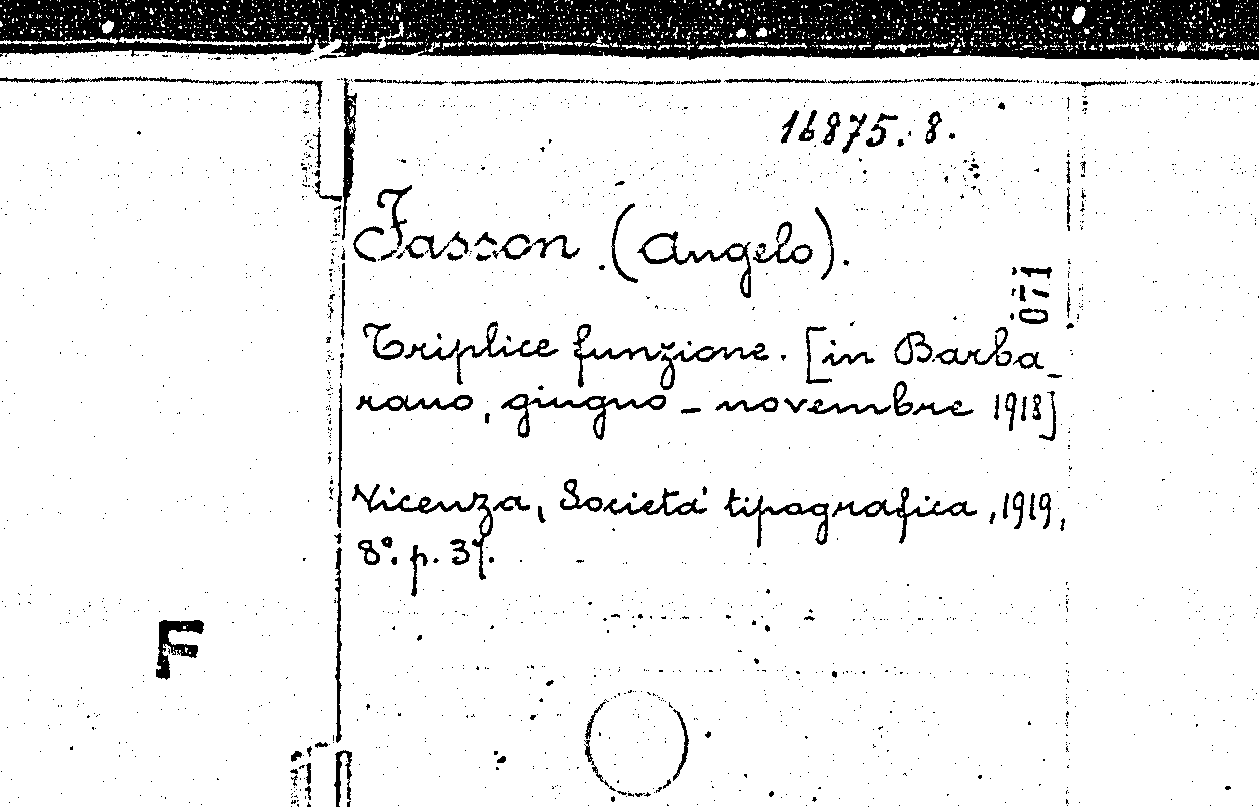 16875.8.
Fasson.(Angelo).
071
Triplice funzione. [in Barba_
rano, giugno - novembre 1918]
Vicenza, Società tipografica, 1919,
8º. p. 37.
F